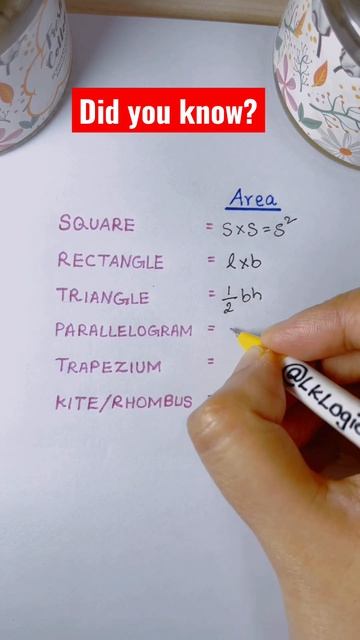 Did you know?
Area
SQUARE = S×S=S²
RECTANGLE = l×b
TRIANGLE = 1/2 bh
PARALLELOGRAM =
TRAPEZIUM =
KITE/RHOMBUS =
@LKLogic